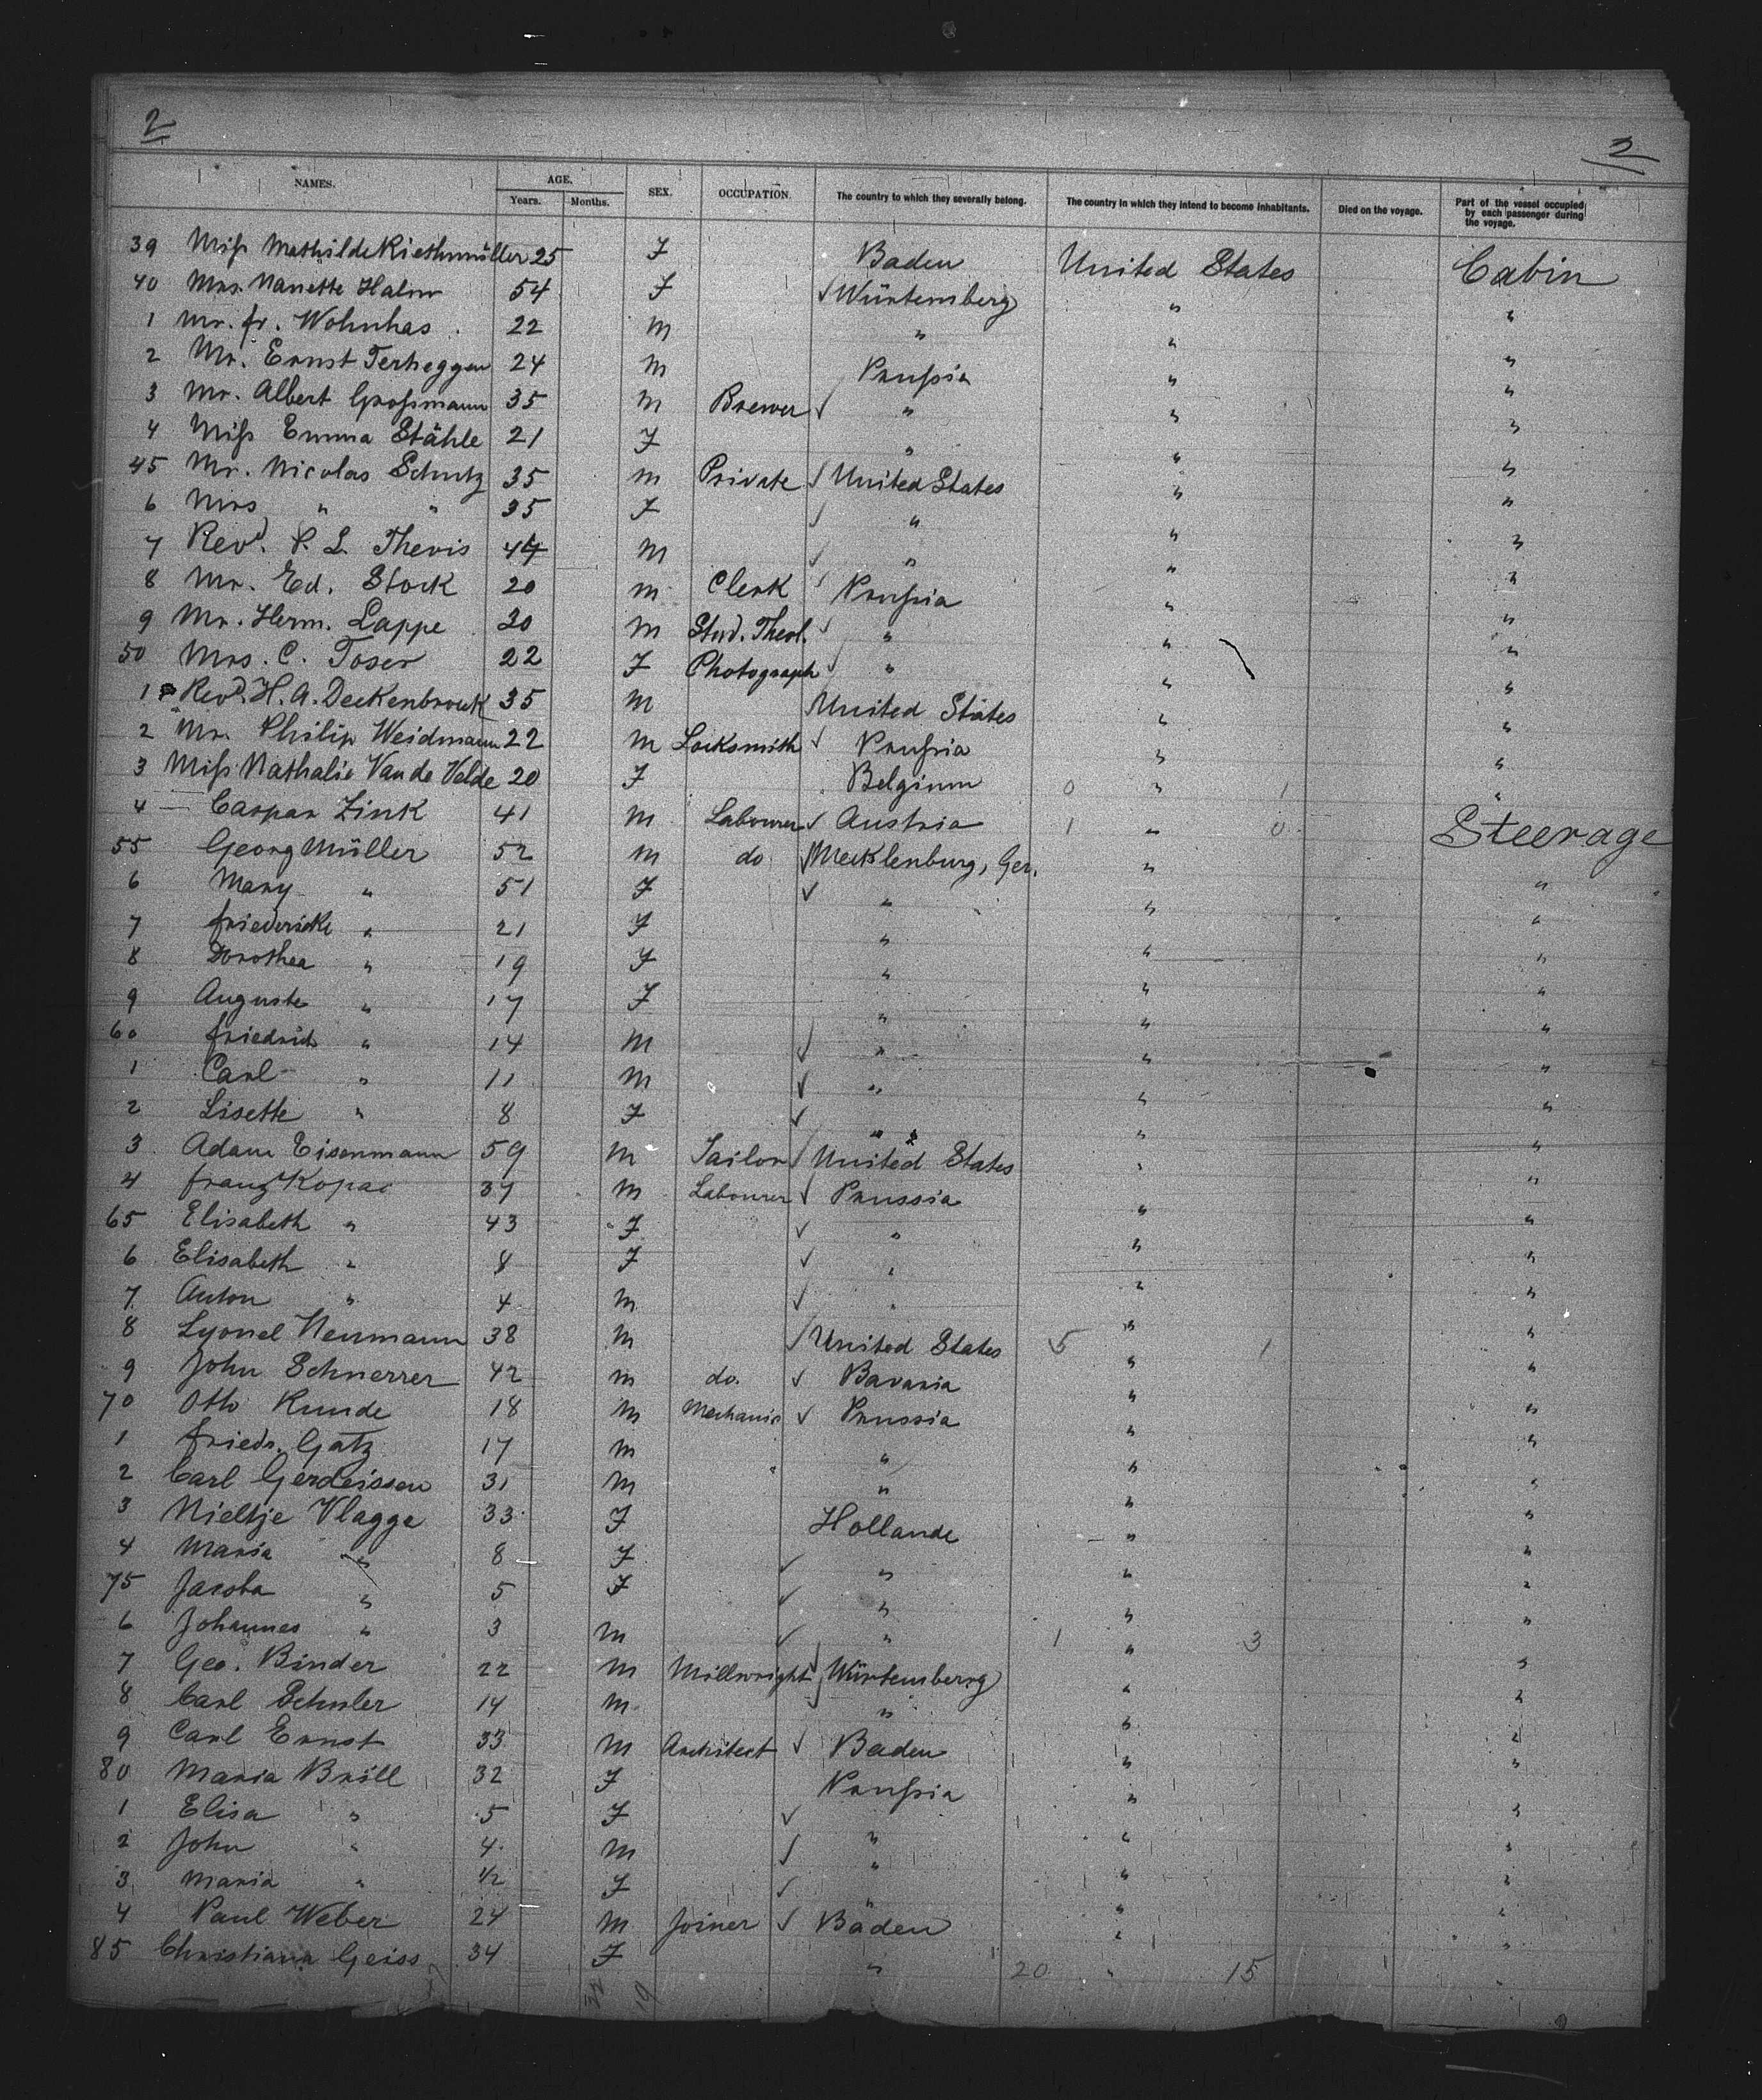 2 2
NAMES. AGE. Years. Months. SEX. OCCUPATION. The country to which they severally belong. The country in which they intend to become inhabitants. Died on the voyage. Part of the vessel occupied by each passenger during the voyage.
39 Miss Mathilde Riethmüller 25 F Baden United States Cabin
40 Mrs. Nanette Halm 54 F ✓ Würtemberg " "
1 Mr. Fr. Wohnhas 22 M " " "
2 Mr. Ernst Terheggen 24 M Prussia " "
3 Mr. Albert Grossmann 35 M Brewer ✓ " " "
4 Miss Emma Stähle 21 F " " "
45 Mr. Nicolas Schutz 35 M Private ✓ United States " "
6 Mrs " " 35 F ✓ " " "
7 Revd. P. L. Thevis 47 M ✓ " " "
8 Mr. Ed. Stock 20 M Clerk ✓ Prussia " "
9 Mr. Herm. Lappe 20 M Stud. Theol. ✓ " " "
50 Mrs. C. Toser 22 F Photograph ✓ " " "
1 Revd. H. A. Deckenbrock 35 M United States " "
2 Mr. Philip Weidmann 22 M Locksmith ✓ Prussia " "
3 Miss Nathalie Van de Velde 20 F Belgium 0 " 1 "
4 Caspar Zink 41 M Labourer ✓ Austria 1 " 0 Steerage
55 Georg Müller 52 M do ✓ Mecklenburg, Ger. " "
6 Mary " 51 F ✓ " " "
7 Friedericke " 21 F " " "
8 Dorothea " 19 F " " "
9 Auguste " 17 F " " "
60 Friedrich " 14 M ✓ " " "
1 Carl " 11 M ✓ " " "
2 Lisette " 8 F ✓ " " "
3 Adam Eisenmann 59 M Tailor ✓ United States " "
4 Franz Kopac 37 M Labourer ✓ Prussia " "
65 Elisabeth " 43 F ✓ " " "
6 Elisabeth " 8 F ✓ " " "
7 Anton " 4 M ✓ " " "
8 Lyonel Neumann 38 M ✓ United States 5 " 1 "
9 John Schnerrer 42 M do. ✓ Bavaria " "
70 Otto Kunde 18 M Mechanic ✓ Prussia " "
1 Friedr. Gatz 17 M " " "
2 Carl Gerdeissen 31 M " " "
3 Nieltje Vlagge 33 F Hollande " "
4 Maria " 8 F ✓ " " "
75 Jacoba " 5 F ✓ " " "
6 Johannes " 3 M ✓ " 1 " 3 "
7 Geo. Binder 22 M Millwright ✓ Würtemberg " "
8 Carl Schuler 14 M ✓ " " "
9 Carl Ernst 33 M Architect ✓ Baden " "
80 Maria Bröll 32 F Prussia " "
1 Elisa " 5 F ✓ " " "
2 John " 4 M ✓ " " "
3 Maria " 1/2 F ✓ " " "
4 Paul Weber 24 M Joiner ✓ Baden " "
85 Christiana Geiss 34 F " 20 " 15 "
19